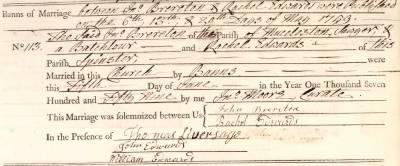 Banns of Marriage between Jno. Brereton & Rachel Edwards were Published
on the 6th, 13th, & 20th Days of May 1759.
No. 113. The Said Jno. Brereton of the Parish of Mucclestone,
a Batchelour and Rachel Edwards of this
Parish, Spinster, were
Married in this Church by Banns
this Fifth Day of June in the Year One Thousand Seven
Hundred and Fifty Nine by me Jno. Moore Curate.
This Marriage was solemnized between Us John Brereton
Rachel Edwards
In the Presence of Thomas Liversage
John Edwards
William Edwards